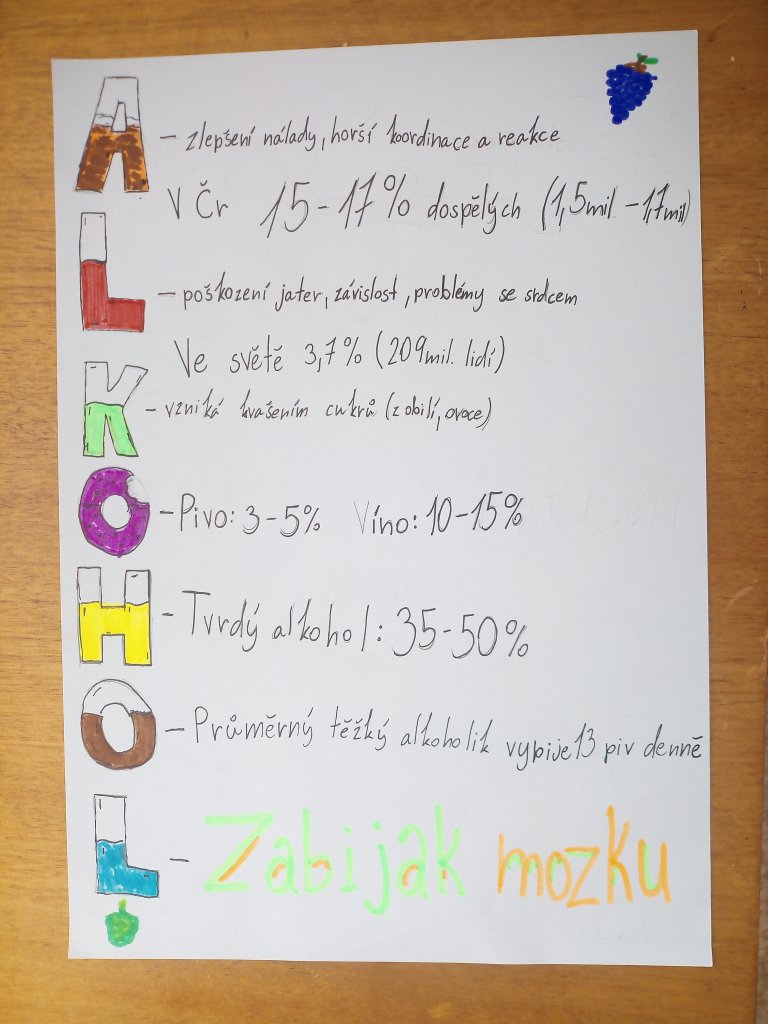 A - zlepšení nálady, horší koordinace a reakce
V Čr 15-17% dospělých (1,5mil. -1,7mil)
L - poškození jater, závislost, problémy se srdcem
Ve světě 3,7% (209mil. lidí)
K - vzniká kvašením cukrů (z obilí, ovoce)
O - Pivo: 3-5% Víno: 10-15%
H - Tvrdý alkohol: 35-50%
O - Průměrný těžký alkoholik vypije 13 piv denně
L - Zabijak mozku